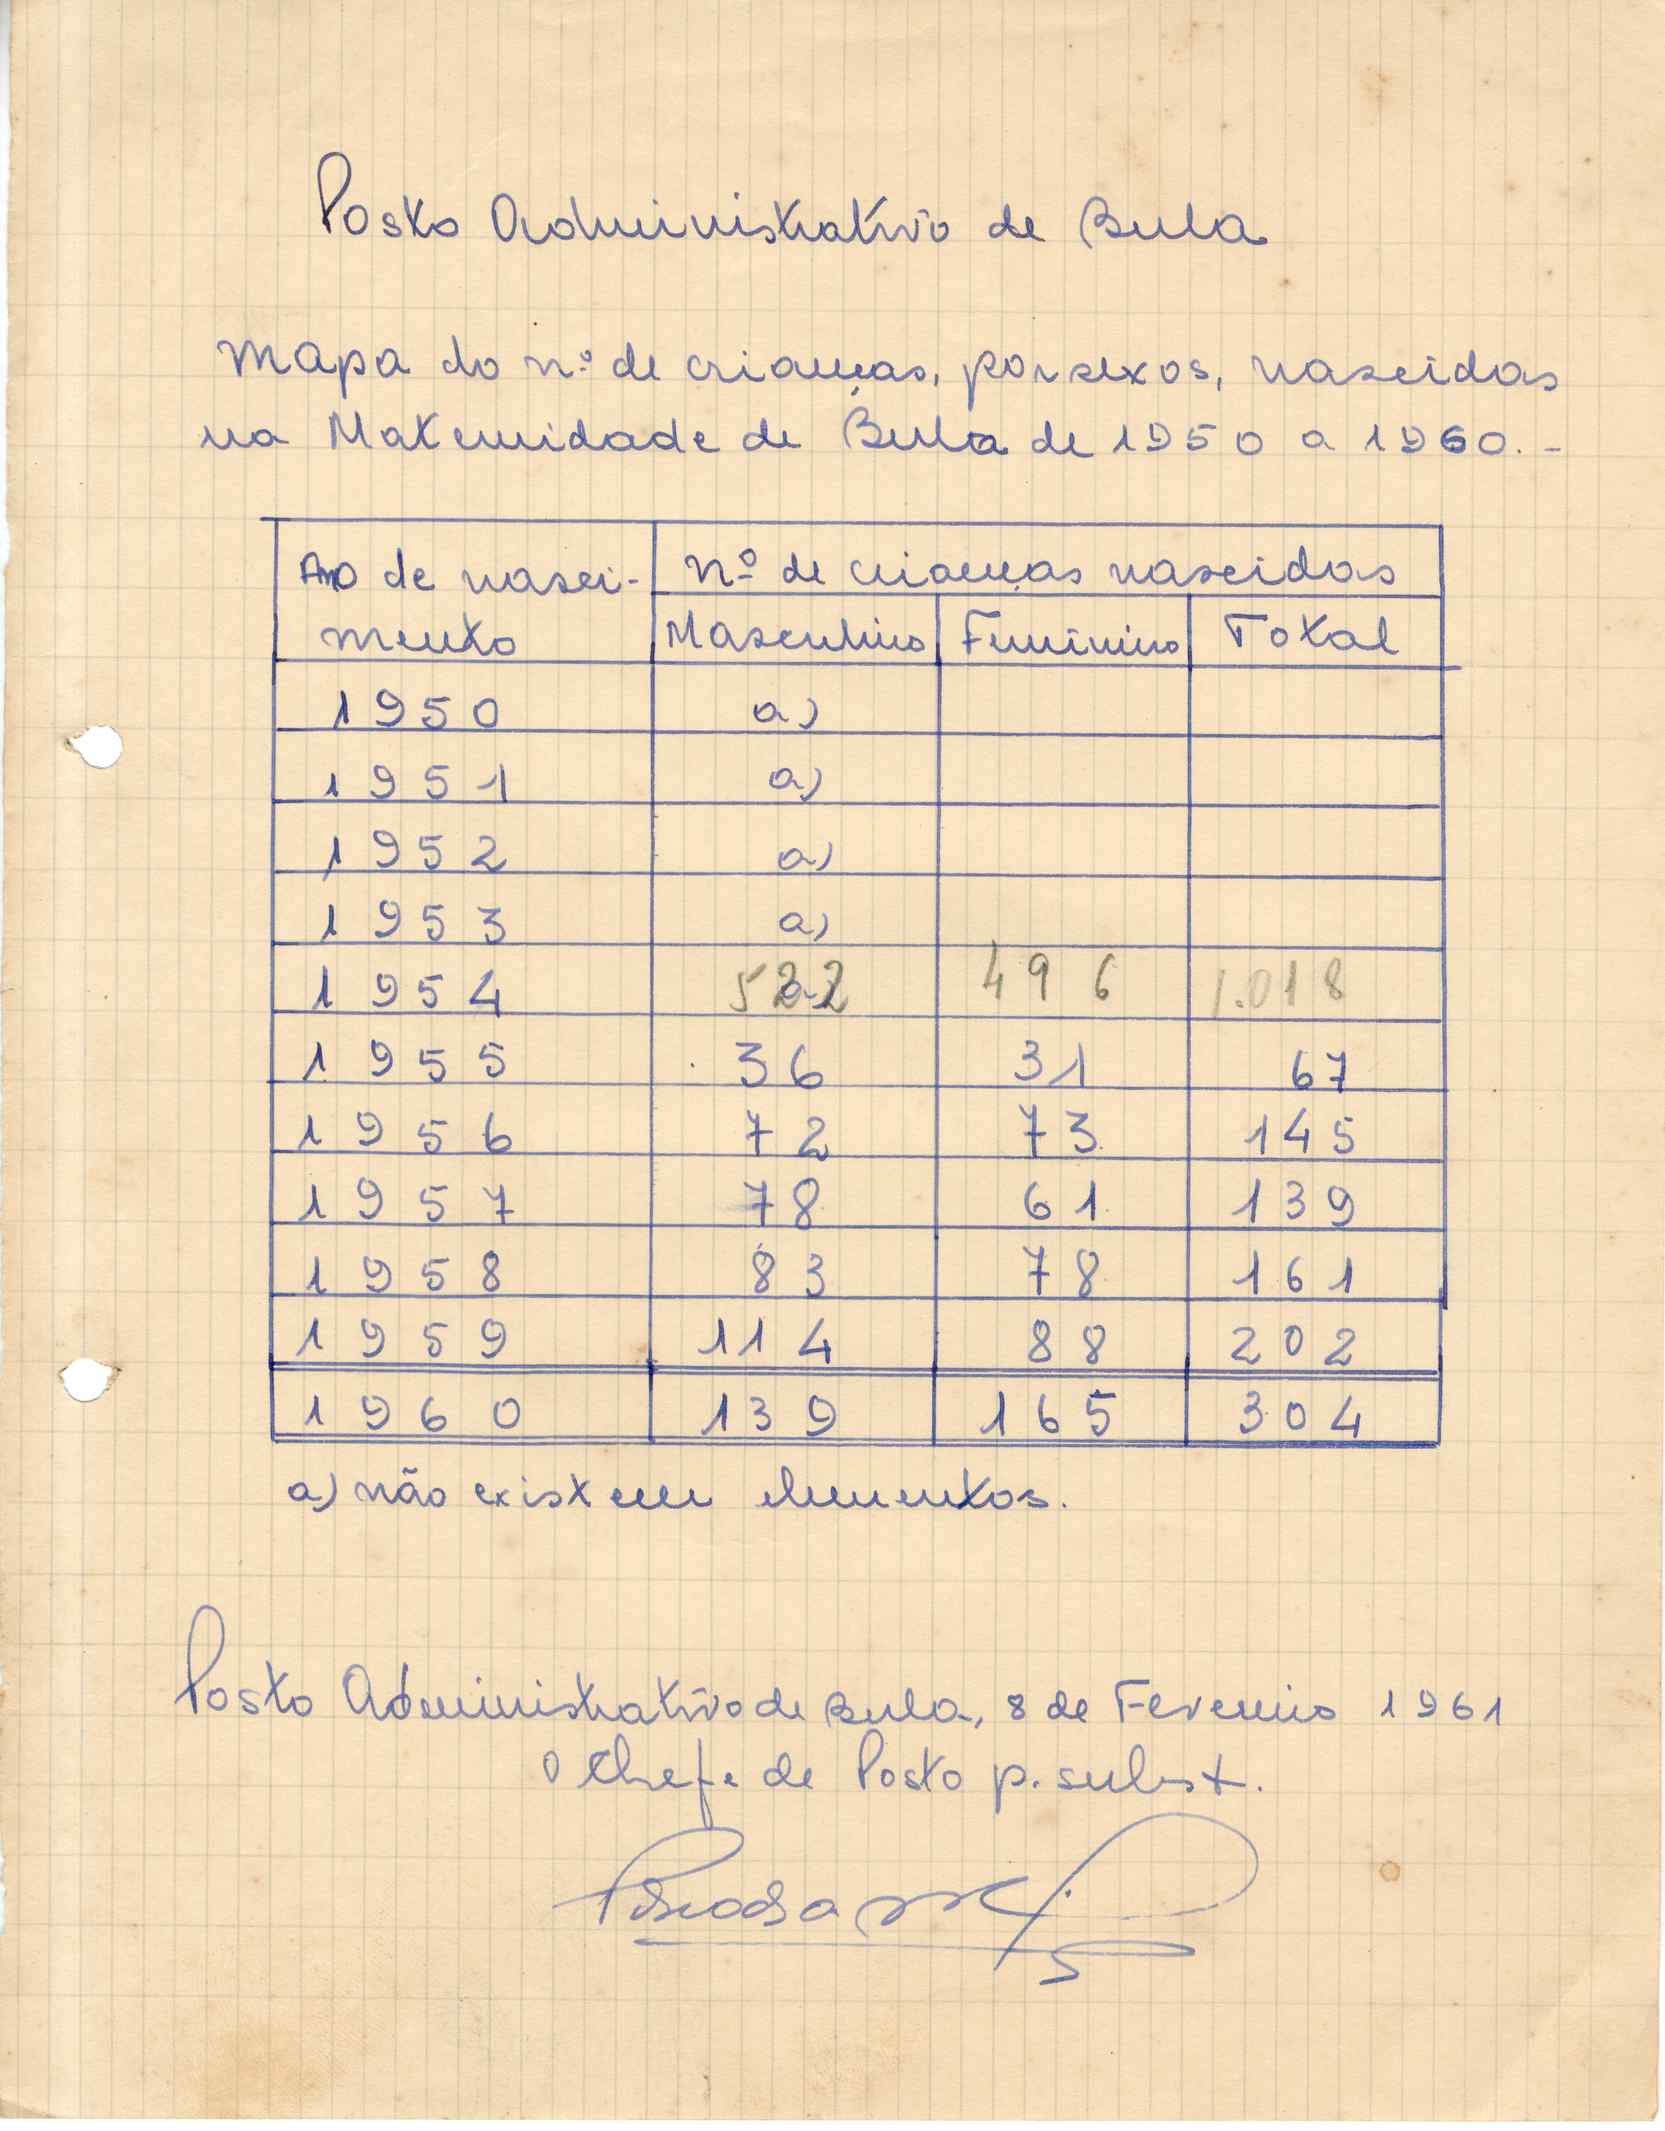 Posto Administrativo de Bula
Mapa do nº de crianças, por sexos, nascidas
na Maternidade de Bula de 1950 a 1960.-
Ano de nasci- nº de crianças nascidas
mento Masculino Feminino Total
1950 a)
1951 a)
1952 a)
1953 a)
1954 a) 522 496 1.018
1955 36 31 67
1956 72 73 145
1957 78 61 139
1958 83 78 161
1959 114 88 202
1960 139 165 304
a) não existem elementos.
Posto Administrativo de Bula, 8 de Fevereiro 1961
O Chefe de Posto p. subst.